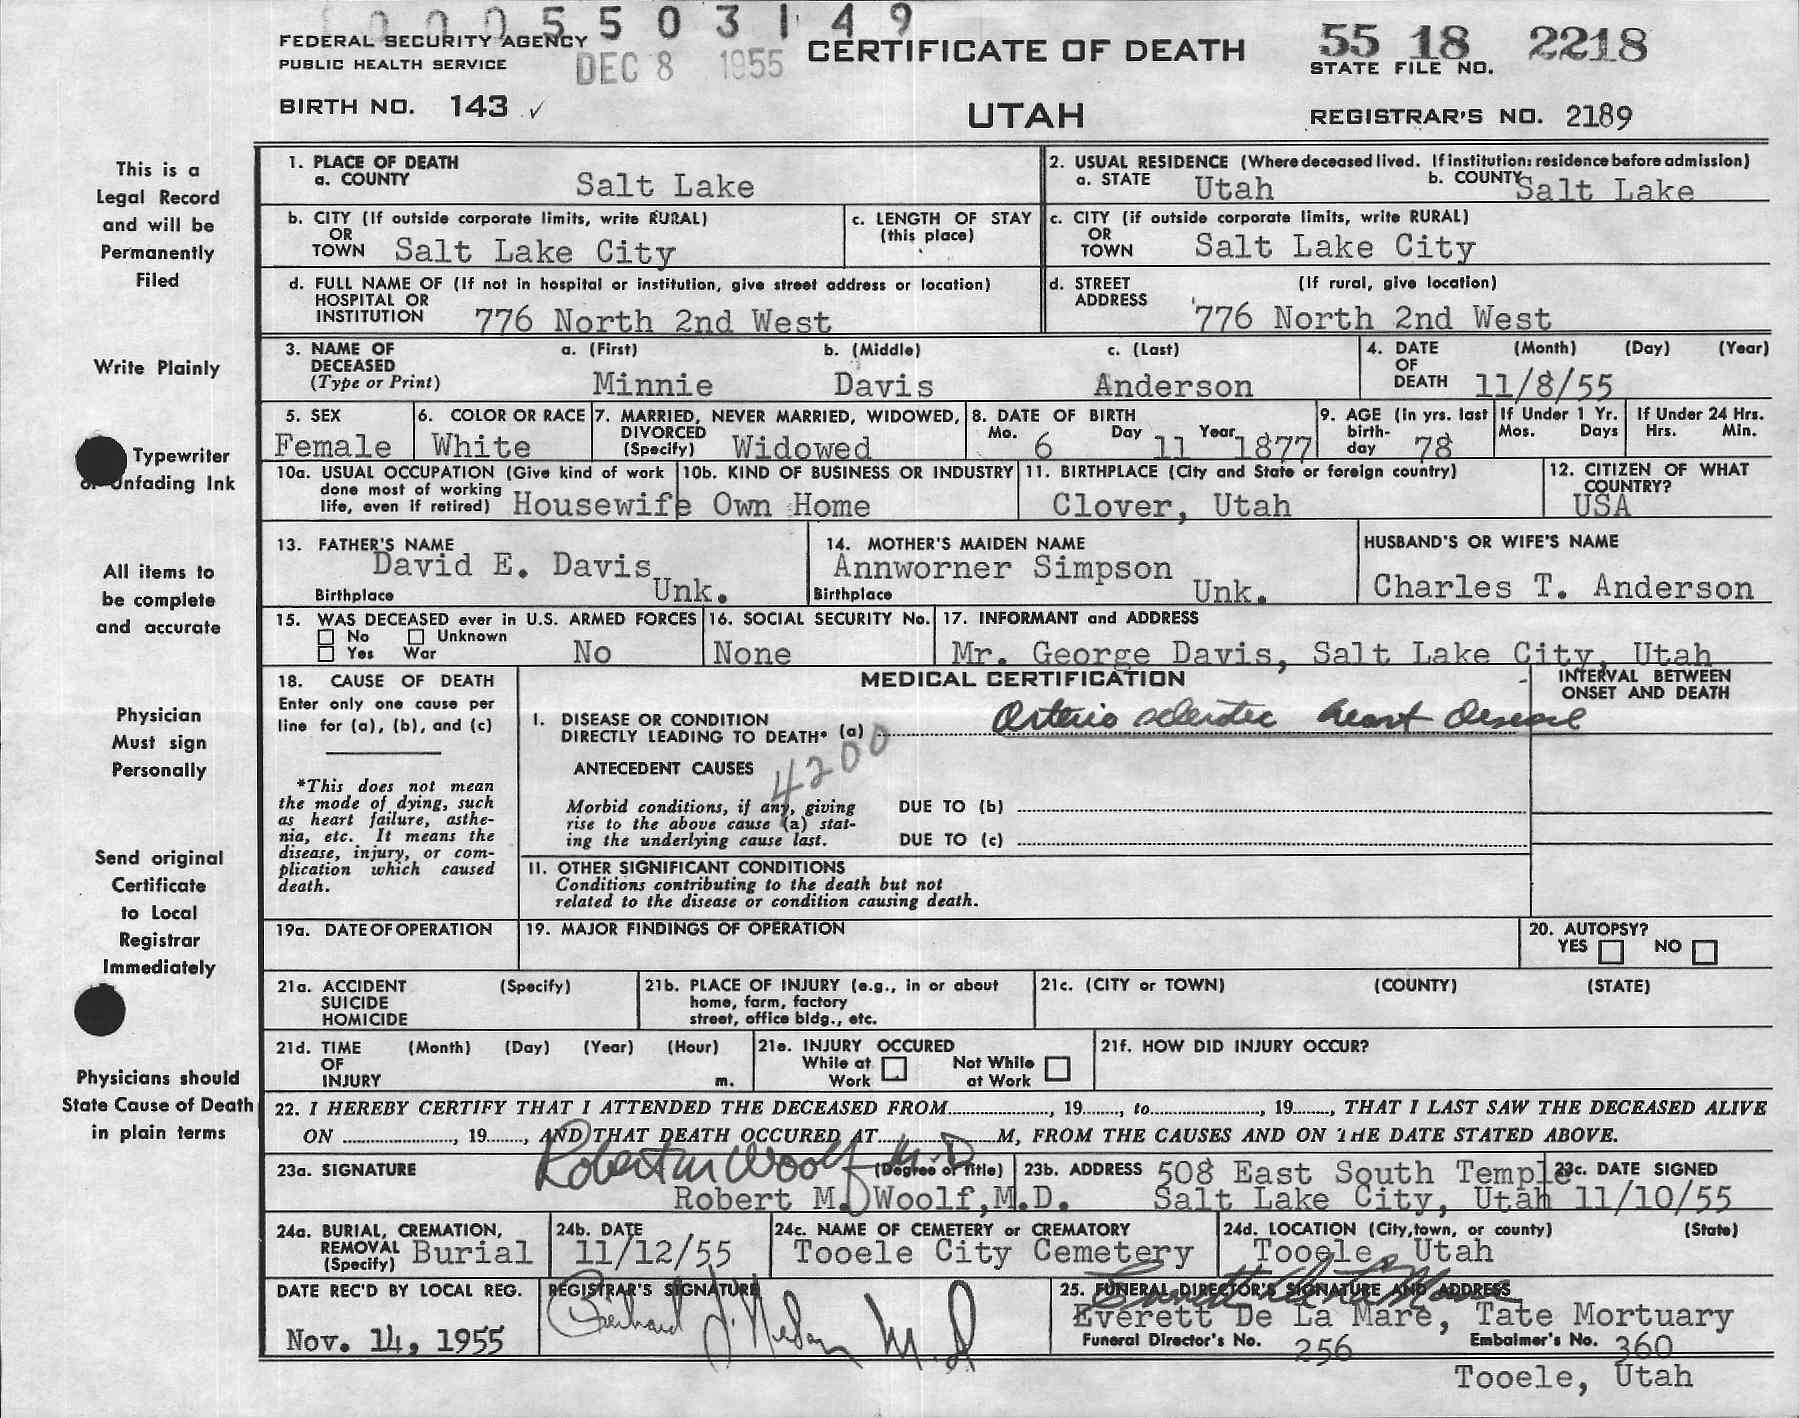 0005503149
FEDERAL SECURITY AGENCY
PUBLIC HEALTH SERVICE
DEC 8 1955
CERTIFICATE OF DEATH
55 18 2218
STATE FILE NO.
BIRTH NO. 143 ✓
UTAH
REGISTRAR'S NO. 2189
This is a
Legal Record
and will be
Permanently
Filed
Write Plainly
Typewriter
or Unfading Ink
All items to
be complete
and accurate
Physician
Must sign
Personally
Send original
Certificate
to Local
Registrar
Immediately
Physicians should
State Cause of Death
in plain terms
1. PLACE OF DEATH
a. COUNTY Salt Lake
2. USUAL RESIDENCE (Where deceased lived. If institution: residence before admission)
a. STATE Utah b. COUNTY Salt Lake
b. CITY (If outside corporate limits, write RURAL)
OR
TOWN Salt Lake City
c. LENGTH OF STAY
(this place)
c. CITY (if outside corporate limits, write RURAL)
OR
TOWN Salt Lake City
d. FULL NAME OF (If not in hospital or institution, give street address or location)
HOSPITAL OR
INSTITUTION 776 North 2nd West
d. STREET (If rural, give location)
ADDRESS 776 North 2nd West
3. NAME OF a. (First) b. (Middle) c. (Last)
DECEASED
(Type or Print) Minnie Davis Anderson
4. DATE (Month) (Day) (Year)
OF
DEATH 11/8/55
5. SEX
Female
6. COLOR OR RACE
White
7. MARRIED, NEVER MARRIED, WIDOWED,
DIVORCED
(Specify) Widowed
8. DATE OF BIRTH
Mo. 6 Day 11 Year 1877
9. AGE (in yrs. last
birth-
day 78
If Under 1 Yr.
Mos. Days
If Under 24 Hrs.
Hrs. Min.
10a. USUAL OCCUPATION (Give kind of work
done most of working
life, even if retired) Housewife
10b. KIND OF BUSINESS OR INDUSTRY
Own Home
11. BIRTHPLACE (City and State or foreign country)
Clover, Utah
12. CITIZEN OF WHAT
COUNTRY?
USA
13. FATHER'S NAME
David E. Davis
Birthplace Unk.
14. MOTHER'S MAIDEN NAME
Annworner Simpson
Birthplace Unk.
HUSBAND'S OR WIFE'S NAME
Charles T. Anderson
15. WAS DECEASED ever in U.S. ARMED FORCES
No Unknown
Yes War No
16. SOCIAL SECURITY No.
None
17. INFORMANT and ADDRESS
Mr. George Davis, Salt Lake City, Utah
18. CAUSE OF DEATH
Enter only one cause per
line for (a), (b), and (c)
*This does not mean
the mode of dying, such
as heart failure, asthe-
nia, etc. It means the
disease, injury, or com-
plication which caused
death.
MEDICAL CERTIFICATION
INTERVAL BETWEEN
ONSET AND DEATH
I. DISEASE OR CONDITION
DIRECTLY LEADING TO DEATH* (a) Arterio sclerotic heart disease
4200
ANTECEDENT CAUSES
Morbid conditions, if any, giving
rise to the above cause (a) stat-
ing the underlying cause last.
DUE TO (b)
DUE TO (c)
II. OTHER SIGNIFICANT CONDITIONS
Conditions contributing to the death but not
related to the disease or condition causing death.
19a. DATE OF OPERATION
19. MAJOR FINDINGS OF OPERATION
20. AUTOPSY?
YES NO
21a. ACCIDENT (Specify)
SUICIDE
HOMICIDE
21b. PLACE OF INJURY (e.g., in or about
home, farm, factory
street, office bldg., etc.
21c. (CITY or TOWN) (COUNTY) (STATE)
21d. TIME (Month) (Day) (Year) (Hour)
OF
INJURY m.
21e. INJURY OCCURED
While at Work
Not While at Work
21f. HOW DID INJURY OCCUR?
22. I HEREBY CERTIFY THAT I ATTENDED THE DECEASED FROM............, 19......, to............, 19......, THAT I LAST SAW THE DECEASED ALIVE
ON ............, 19......, AND THAT DEATH OCCURED AT............M, FROM THE CAUSES AND ON THE DATE STATED ABOVE.
23a. SIGNATURE Robert M Woolf M.D (Degree or Title)
Robert M. Woolf, M.D.
23b. ADDRESS 508 East South Temple
Salt Lake City, Utah
23c. DATE SIGNED
11/10/55
24a. BURIAL, CREMATION,
REMOVAL
(Specify) Burial
24b. DATE
11/12/55
24c. NAME OF CEMETERY or CREMATORY
Tooele City Cemetery
24d. LOCATION (City, town, or county) (State)
Tooele, Utah
DATE REC'D BY LOCAL REG.
Nov. 14, 1955
REGISTRAR'S SIGNATURE
M.D
25. FUNERAL DIRECTOR'S SIGNATURE AND ADDRESS
Everett De La Mare, Tate Mortuary
Funeral Director's No. 256 Embalmer's No. 360
Tooele, Utah